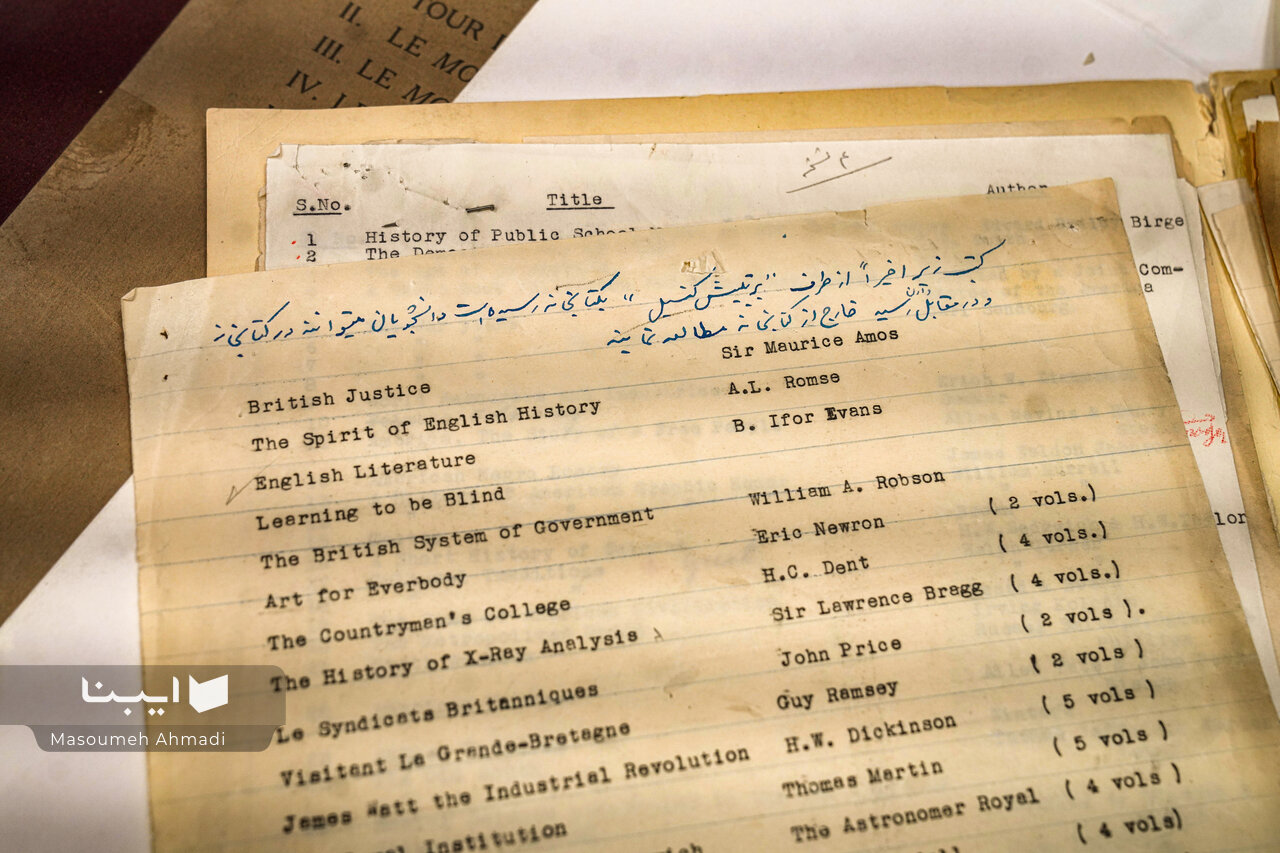 TOUR
II. LE MO
III. LE MO
IV.
۴ نسخه
S.No. Title Author
1 History of Public School Birge
2 The
Com-
a
کتب زیر اخیراً از طرف "بریتیش کنسیل" بکتابخانه رسیده است دانشجویان میتوانند در کتابخانه
و در مقابل دادن رسید خارج از کتابخانه مطالعه نمایند
British Justice Sir Maurice Amos
The Spirit of English History A.L. Romse
English Literature B. Ifor Evans
Learning to be Blind
The British System of Government William A. Robson ( 2 vols.)
Art for Everbody Eric Newron ( 4 vols.)
The Countryman's College H.C. Dent ( 4 vols.)
The History of X-Ray Analysis Sir Lawrence Bragg ( 2 vols ).
Le Syndicats Britanniques John Price ( 2 vols )
Visitant La Grande-Bretagne Guy Ramsey ( 5 vols )
James Watt the Industrial Revolution H.W. Dickinson ( 5 vols )
Institution Thomas Martin ( 4 vols )
The Astronomer Royal ( 4 vols)
lor
ایبنا
Masoumeh Ahmadi